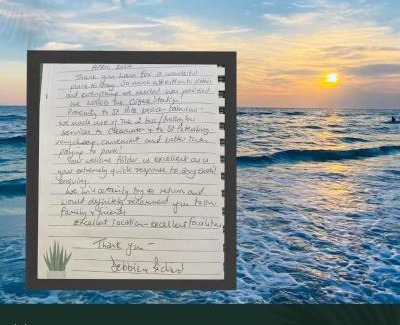 April 2023
Thank you Karen for a wonderful
place to stay. So much attention to detail
and everything we needed was provided
We loved the location
Proximity to St Pete beach - fabulous -
we made use of the bus/trolley bus
services to Clearwater & to St Petersburg -
very cheap, convenient and better than
paying to park!
Your welcome folder is excellent as is
your extremely quick response to any email
enquiry.
We will certainly try to return and
would definitely recommend you to our
family & friends
Excellent location - excellent facilities
Thank you -
Debbie & Richard